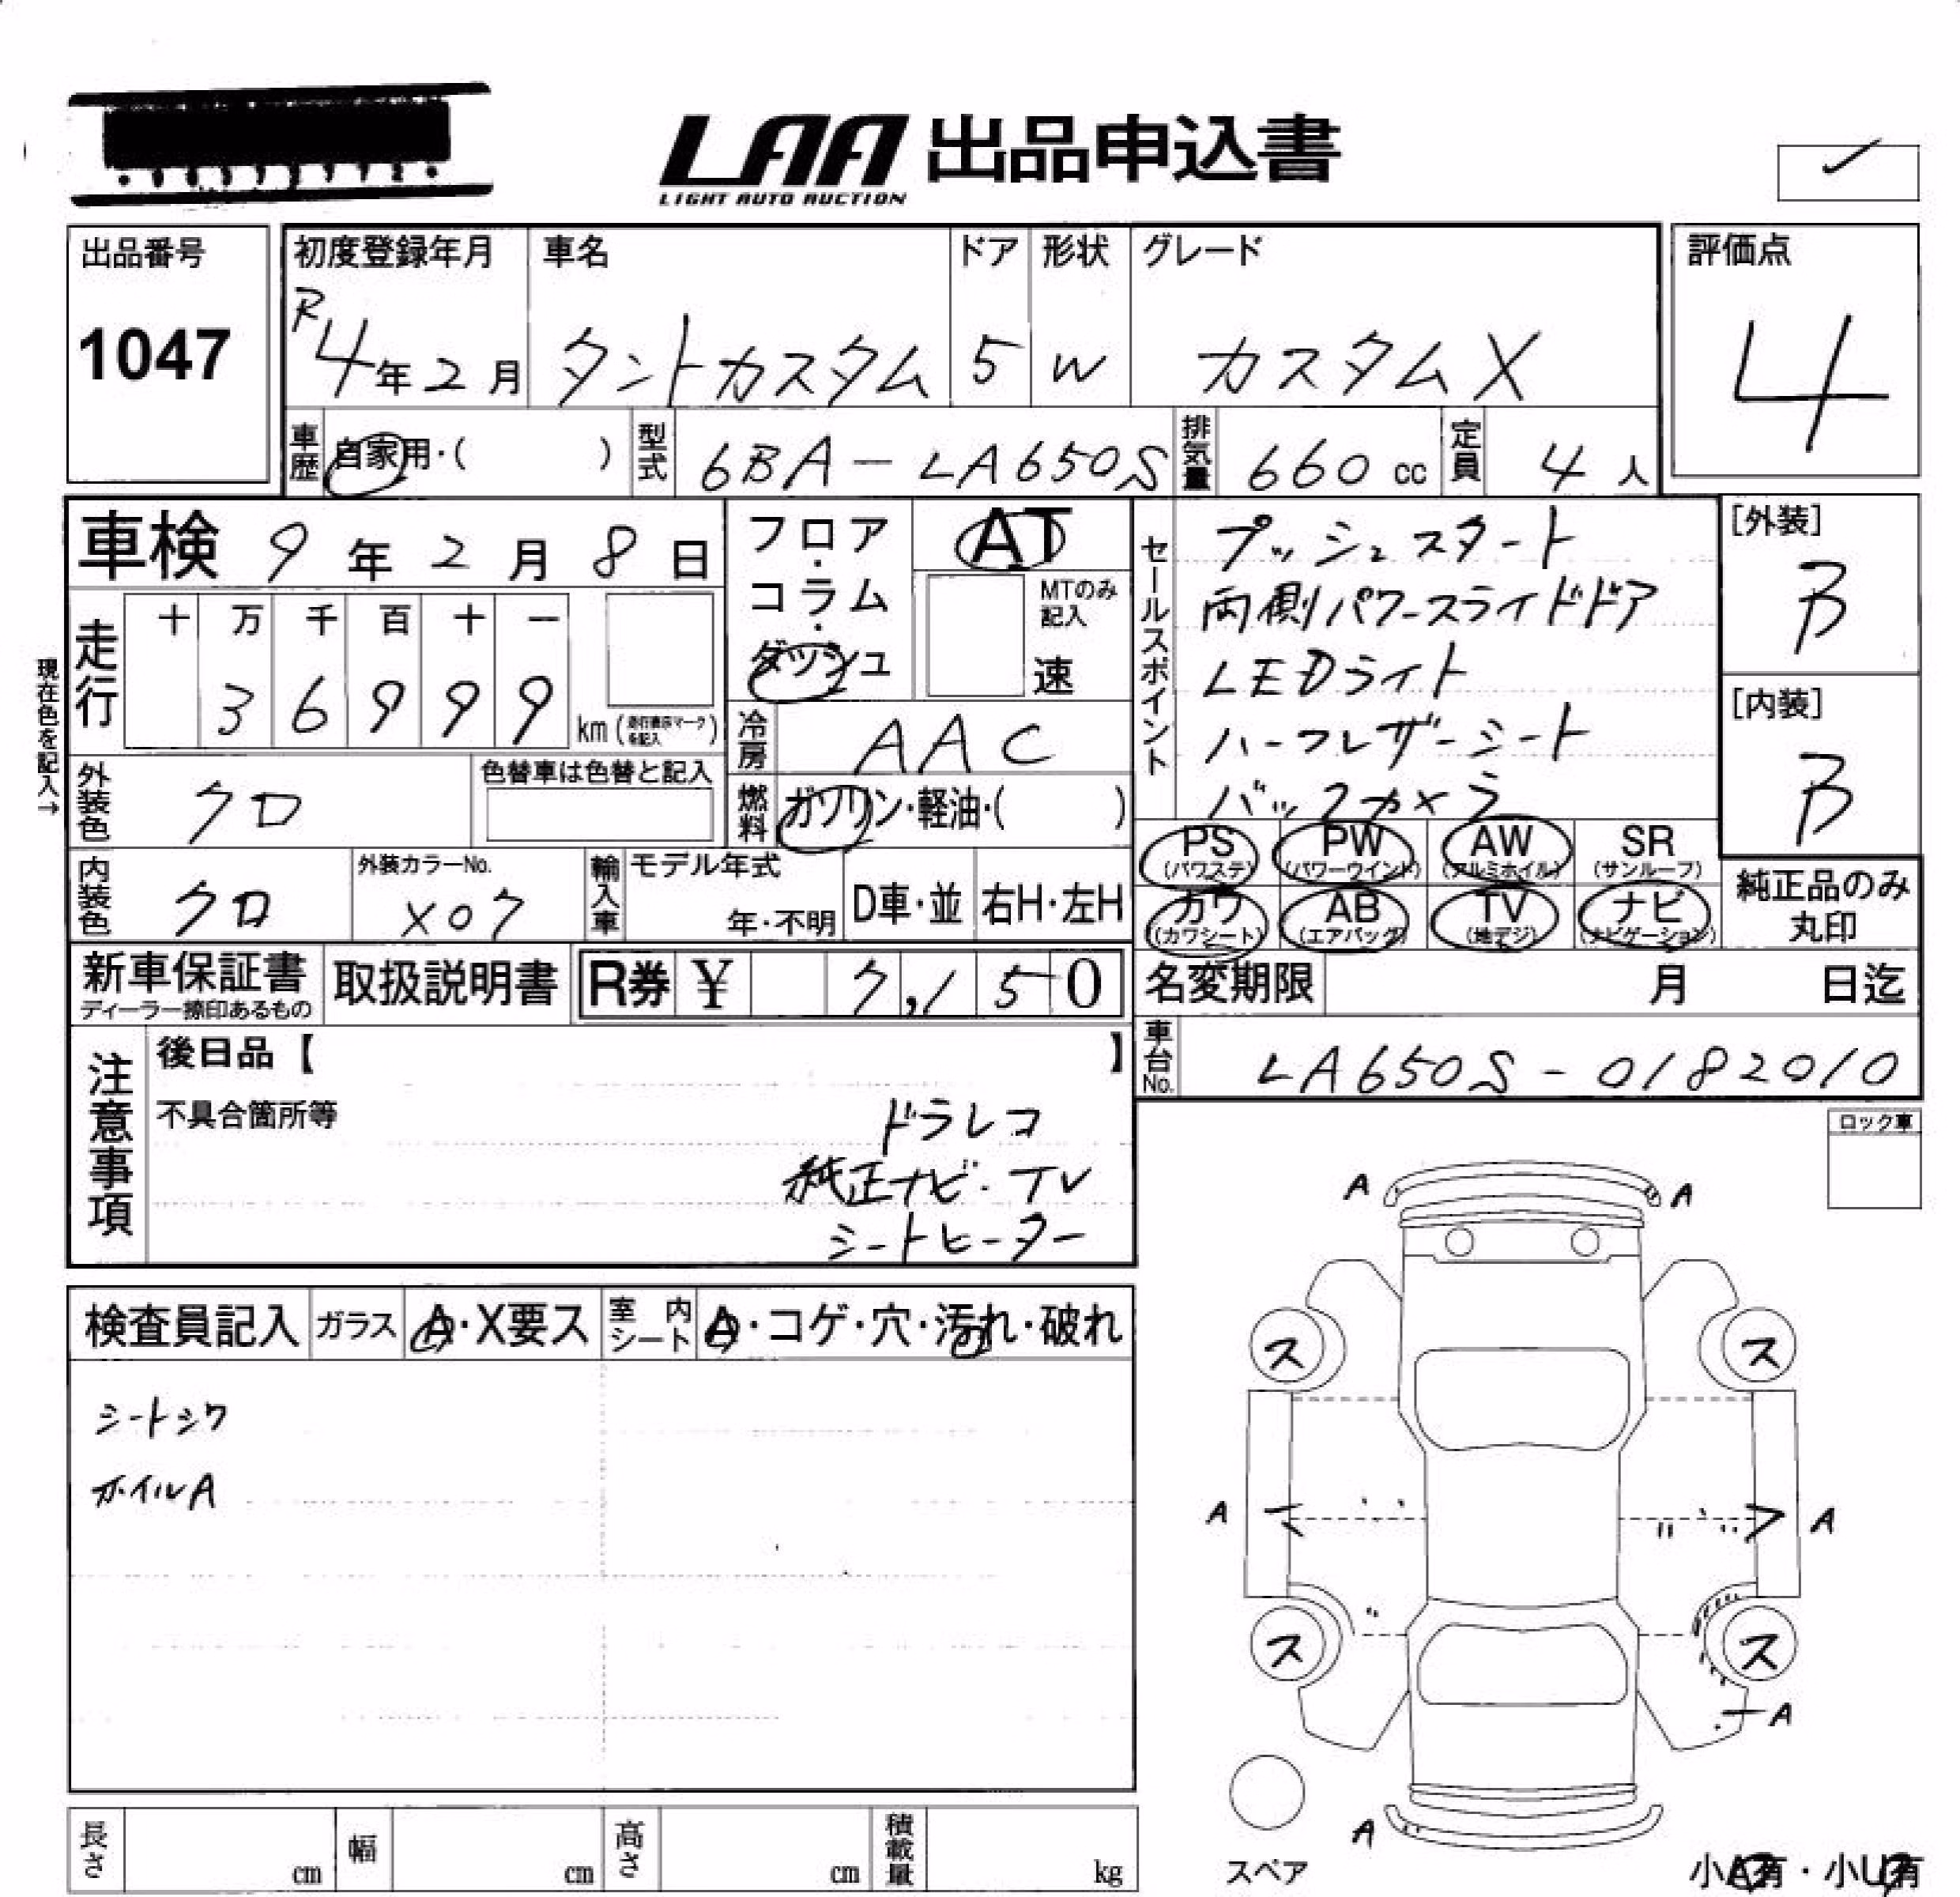 LAA 出品申込書
LIGHT AUTO AUCTION
出品番号
1047
初度登録年月
R4年2月
車名
タントカスタム
ドア
5
形状
W
グレード
カスタムX
評価点
4
車歴
自家用・( )
型式
6BA-LA650S
排気量
660 cc
定員
4人
車検 9年2月8日
現在色を記入→
走行
十 万 千 百 十 一
3 6 9 9 9
km (走行表示マークを記入)
フロア・コラム・ダッシュ
AT
MTのみ記入
速
冷房
AAC
燃料
ガソリン・軽油・( )
外装色
クロ
色替車は色替と記入
内装色
クロ
外装カラーNo.
X07
輸入車
モデル年式
年・不明
D車・並
右H・左H
セールスポイント
プッシュスタート
両側パワースライドドア
LEDライト
ハーフレザーシート
バックカメラ
[外装]
B
[内装]
B
PS (パワステ)
PW (パワーウインド)
AW (アルミホイル)
SR (サンルーフ)
カワ (カワシート)
AB (エアバッグ)
TV (地デジ)
ナビ (ナビゲーション)
純正品のみ丸印
新車保証書
ディーラー捺印あるもの
取扱説明書
R券 ¥ 7,150
名変期限 月 日迄
車台No.
LA650S-0182010
注意事項
後日品【 】
不具合箇所等
ドラレコ
純正ナビ・TV
シートヒーター
ロック車
検査員記入
ガラス
A・X要ス
室内シート
A・コゲ・穴・汚れ・破れ
シートシワ
ホイルA
A A
ス ス
A A
ス ス
A
A
スペア
小A有・小U有
長さ cm
幅 cm
高さ cm
積載量 kg